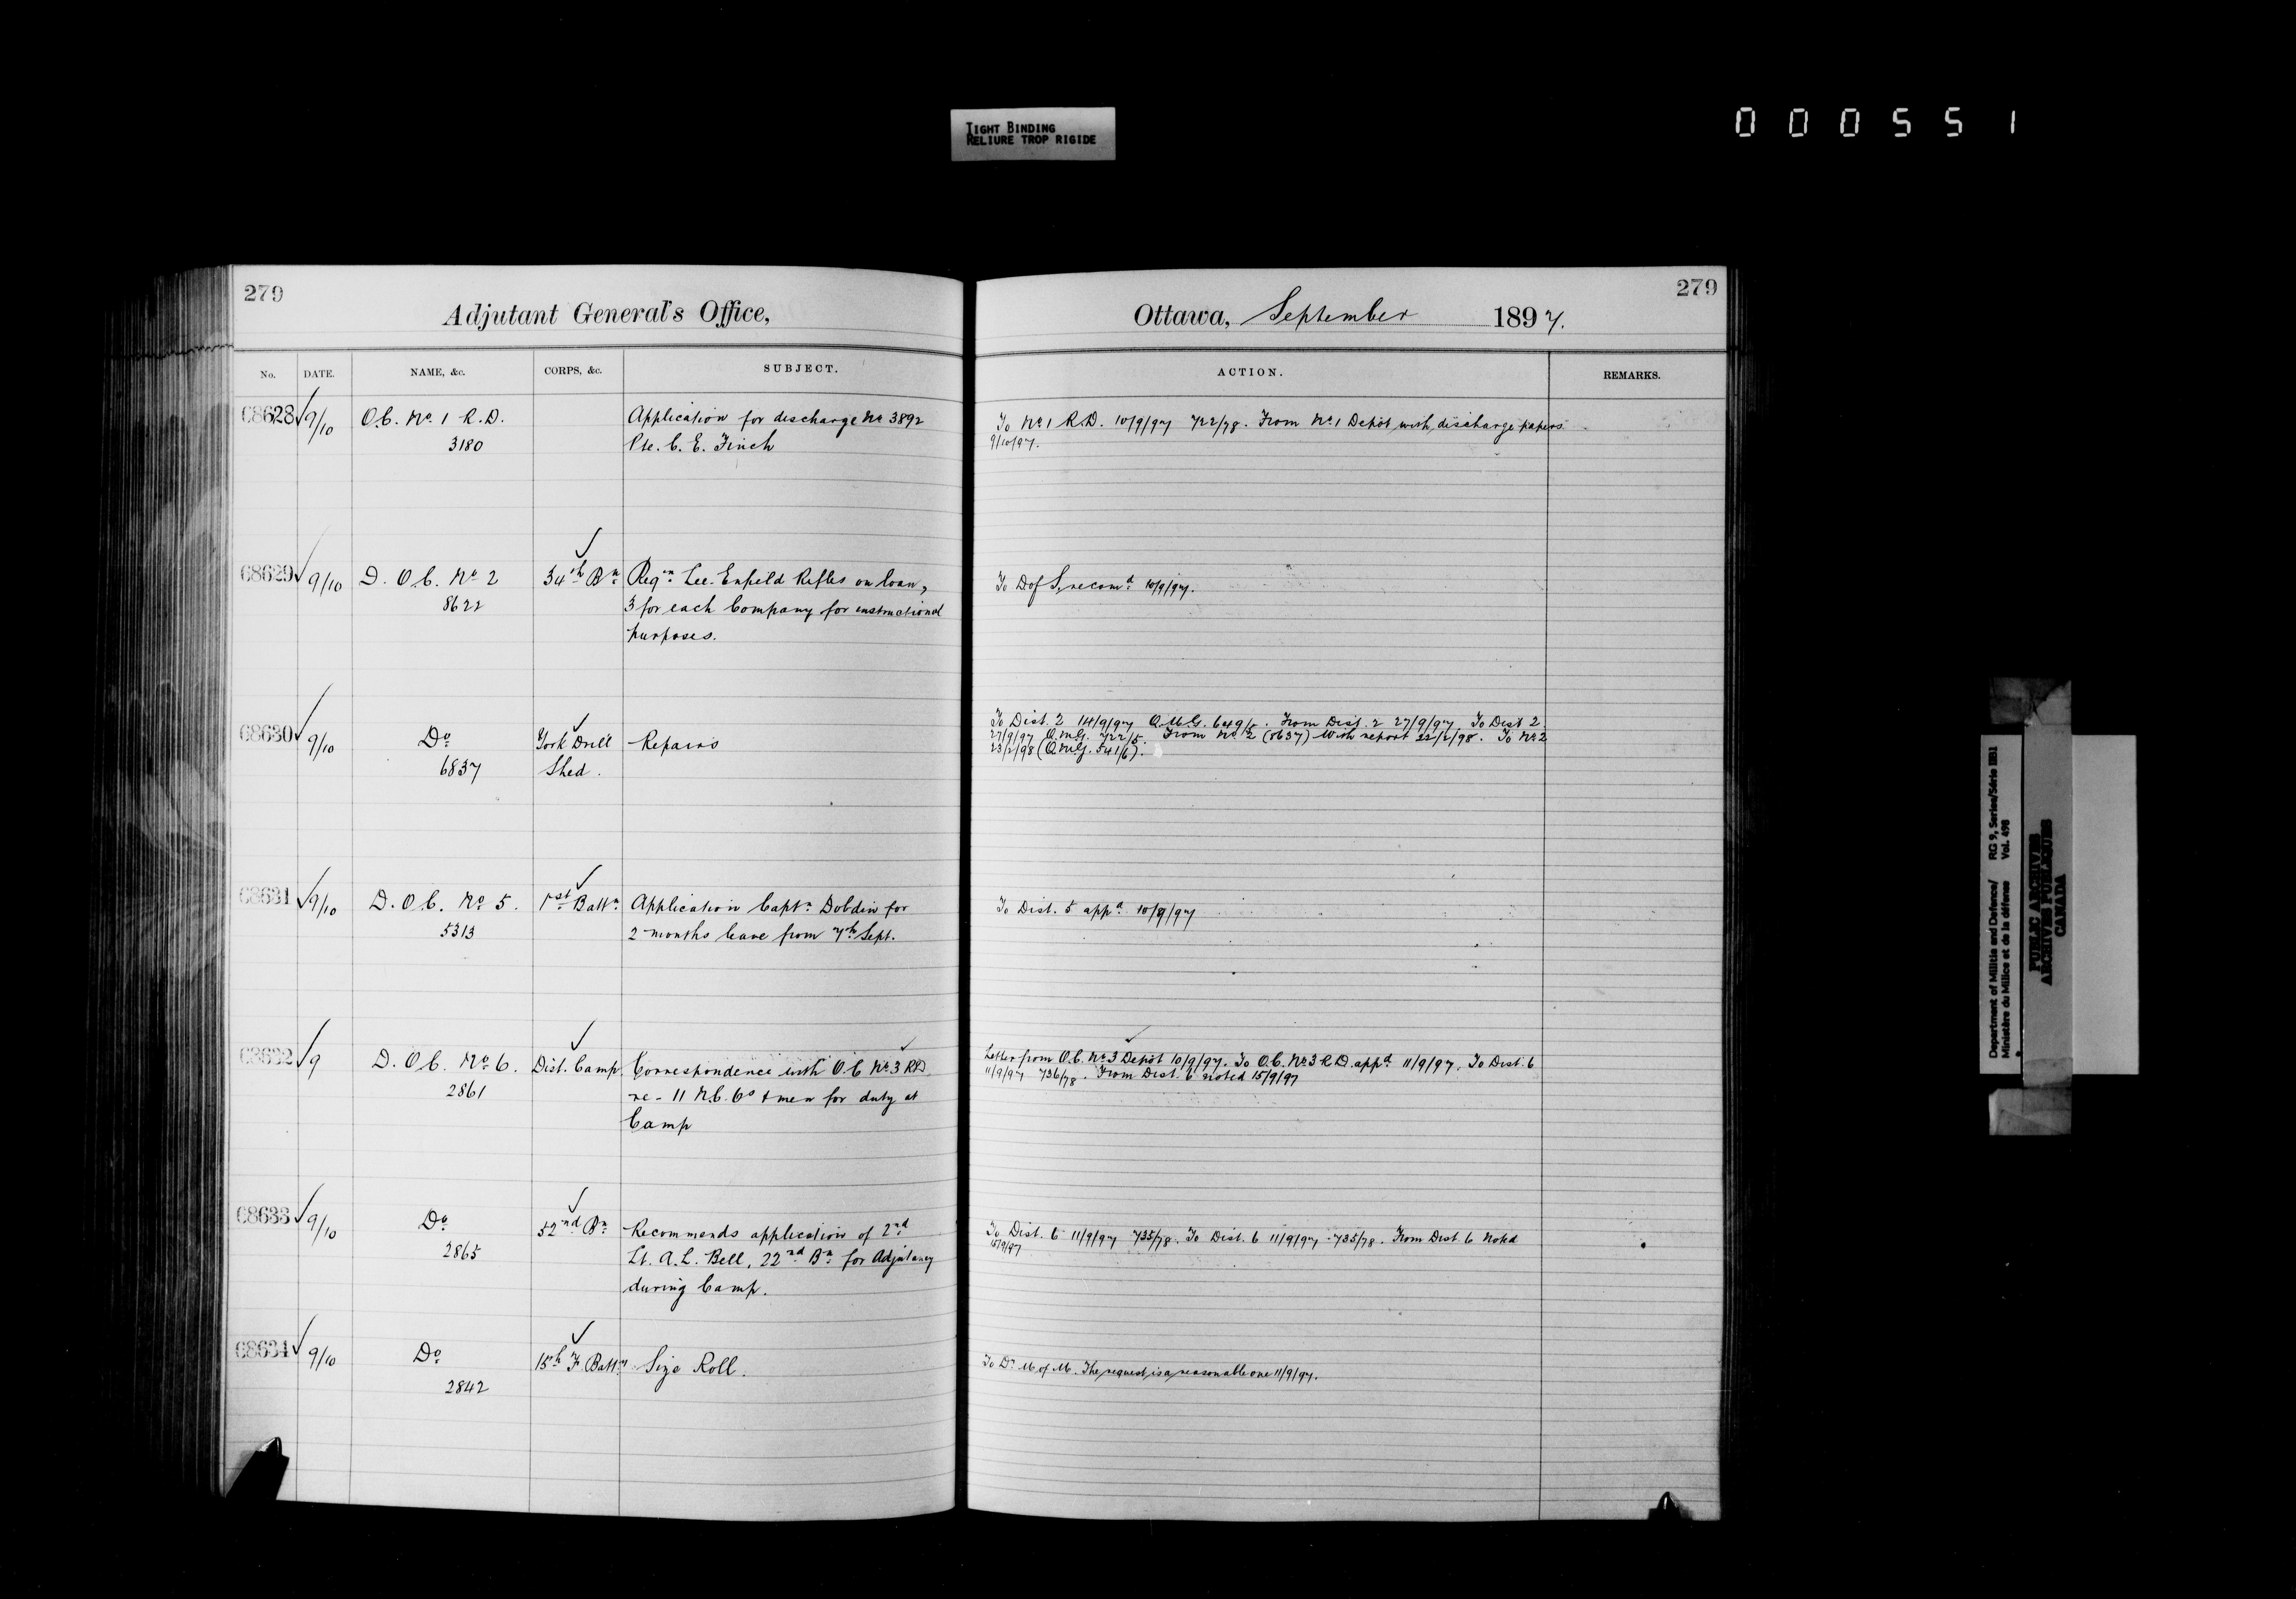 TIGHT BINDING
RELIURE TROP RIGIDE
000551
279
Adjutant General's Office,
No. DATE. NAME, &c. CORPS, &c. SUBJECT.
68628 9/10 O.C. No 1 R.D. Application for discharge No 3892
3180 Pte. C. E. Finch
68629 9/10 D. O. C. No 2 34th Bn Reqn Lee-Enfield Rifles on loan,
8622 3 for each Company for instructional
purposes.
68630 9/10 Do York Drill Repairs
6837 Shed.
68631 9/10 D. O. C. No 5. 1st Battn Application Captn Dobdin for
5313 2 months leave from 7th Sept.
68632 9 D. O. C. No 6. Dist. Camp. Correspondence with O.C No 3 R.D.
2861 re - 11 N.C. Os & men for duty at
Camp
68633 9/10 Do 52nd Bn Recommends application of 2nd
2865 Lt. A. L. Bell, 22nd Bn for Adjutancy
during Camp.
68634 9/10 Do 15th F. Batty Size Roll.
2842
279
Ottawa, September 1897.
ACTION. REMARKS.
To No 1 R.D. 10/9/97 722/78. From No 1 Depôt with discharge papers
9/10/97.
To D of S, recomd 10/9/97.
To Dist. 2 14/9/97 Q.M.G. 649/5. From Dist. 2 27/9/97 To Dist 2.
27/9/97 Q.M.G. 722/5. From No 2 (8637) With report 22/2/98. To No 2
23/2/98 (Q.M.G. 541/6).
To Dist. 5 appd 10/9/97
Letter from O.C. No 3 Depôt 10/9/97. To O.C. No 3 R.D. appd 11/9/97. To Dist. 6
11/9/97 736/78. From Dist. 6 noted 15/9/97
To Dist. 6 11/9/97 735/78. To Dist. 6 11/9/97 735/78. From Dist. 6 Noted
15/9/97
To Dr M of M. The request is a reasonable one 11/9/97.
Department of Militia and Defence/ RG 9, Series/Série IIB1
Ministère du Milice et de la défense Vol. 498
PUBLIC ARCHIVES
ARCHIVES PUBLIQUES
CANADA